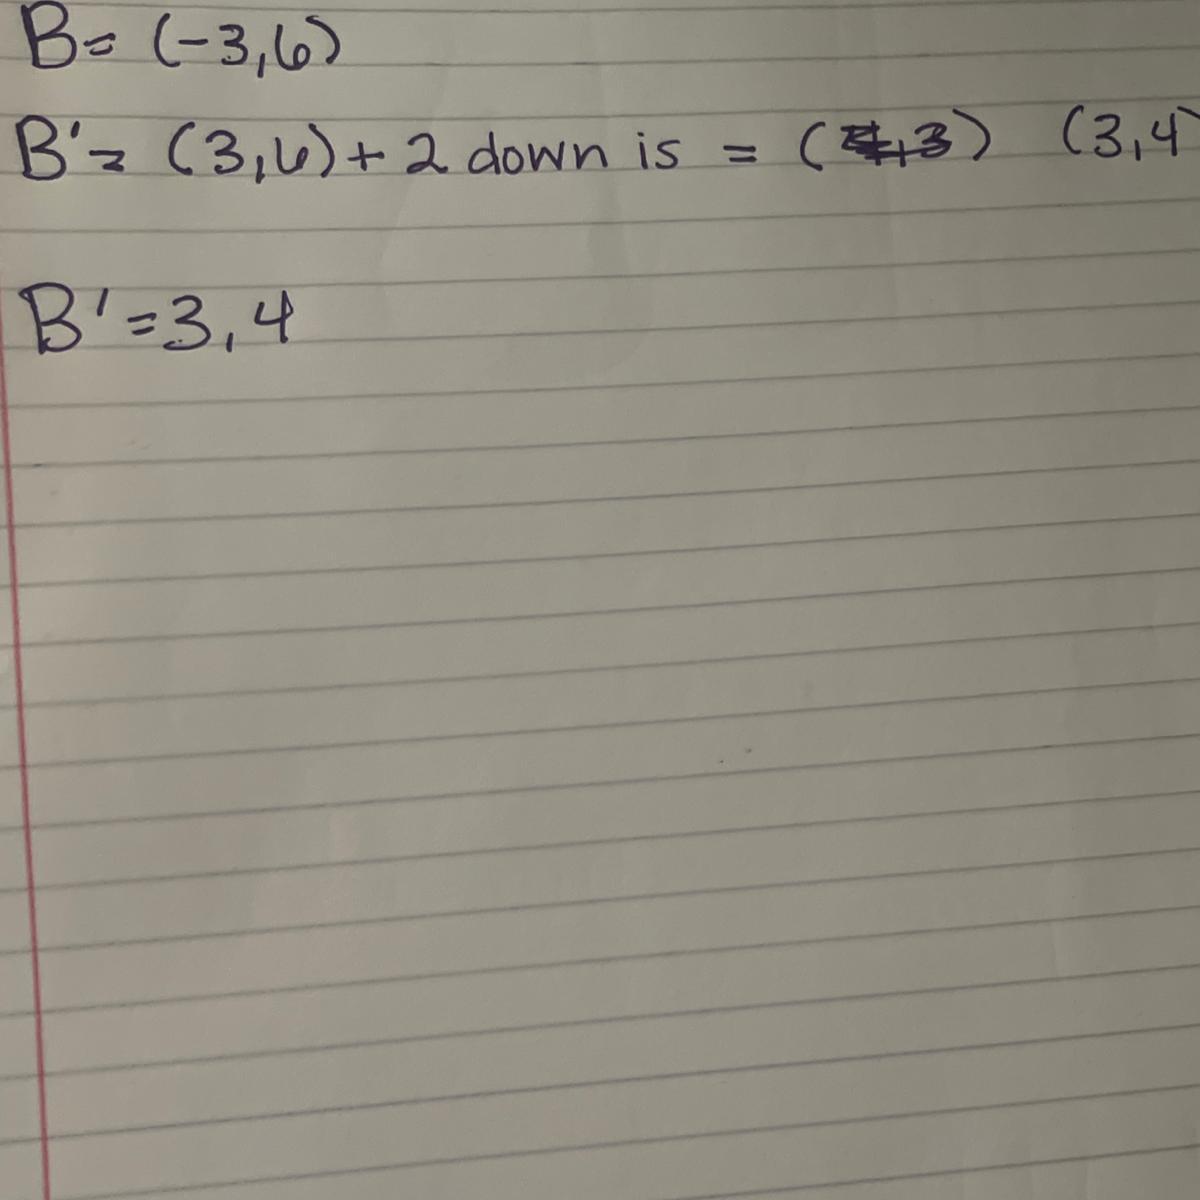 B= (-3,6)
B'= (3,6) + 2 down is = ( ) (3,4)
B' = 3, 4